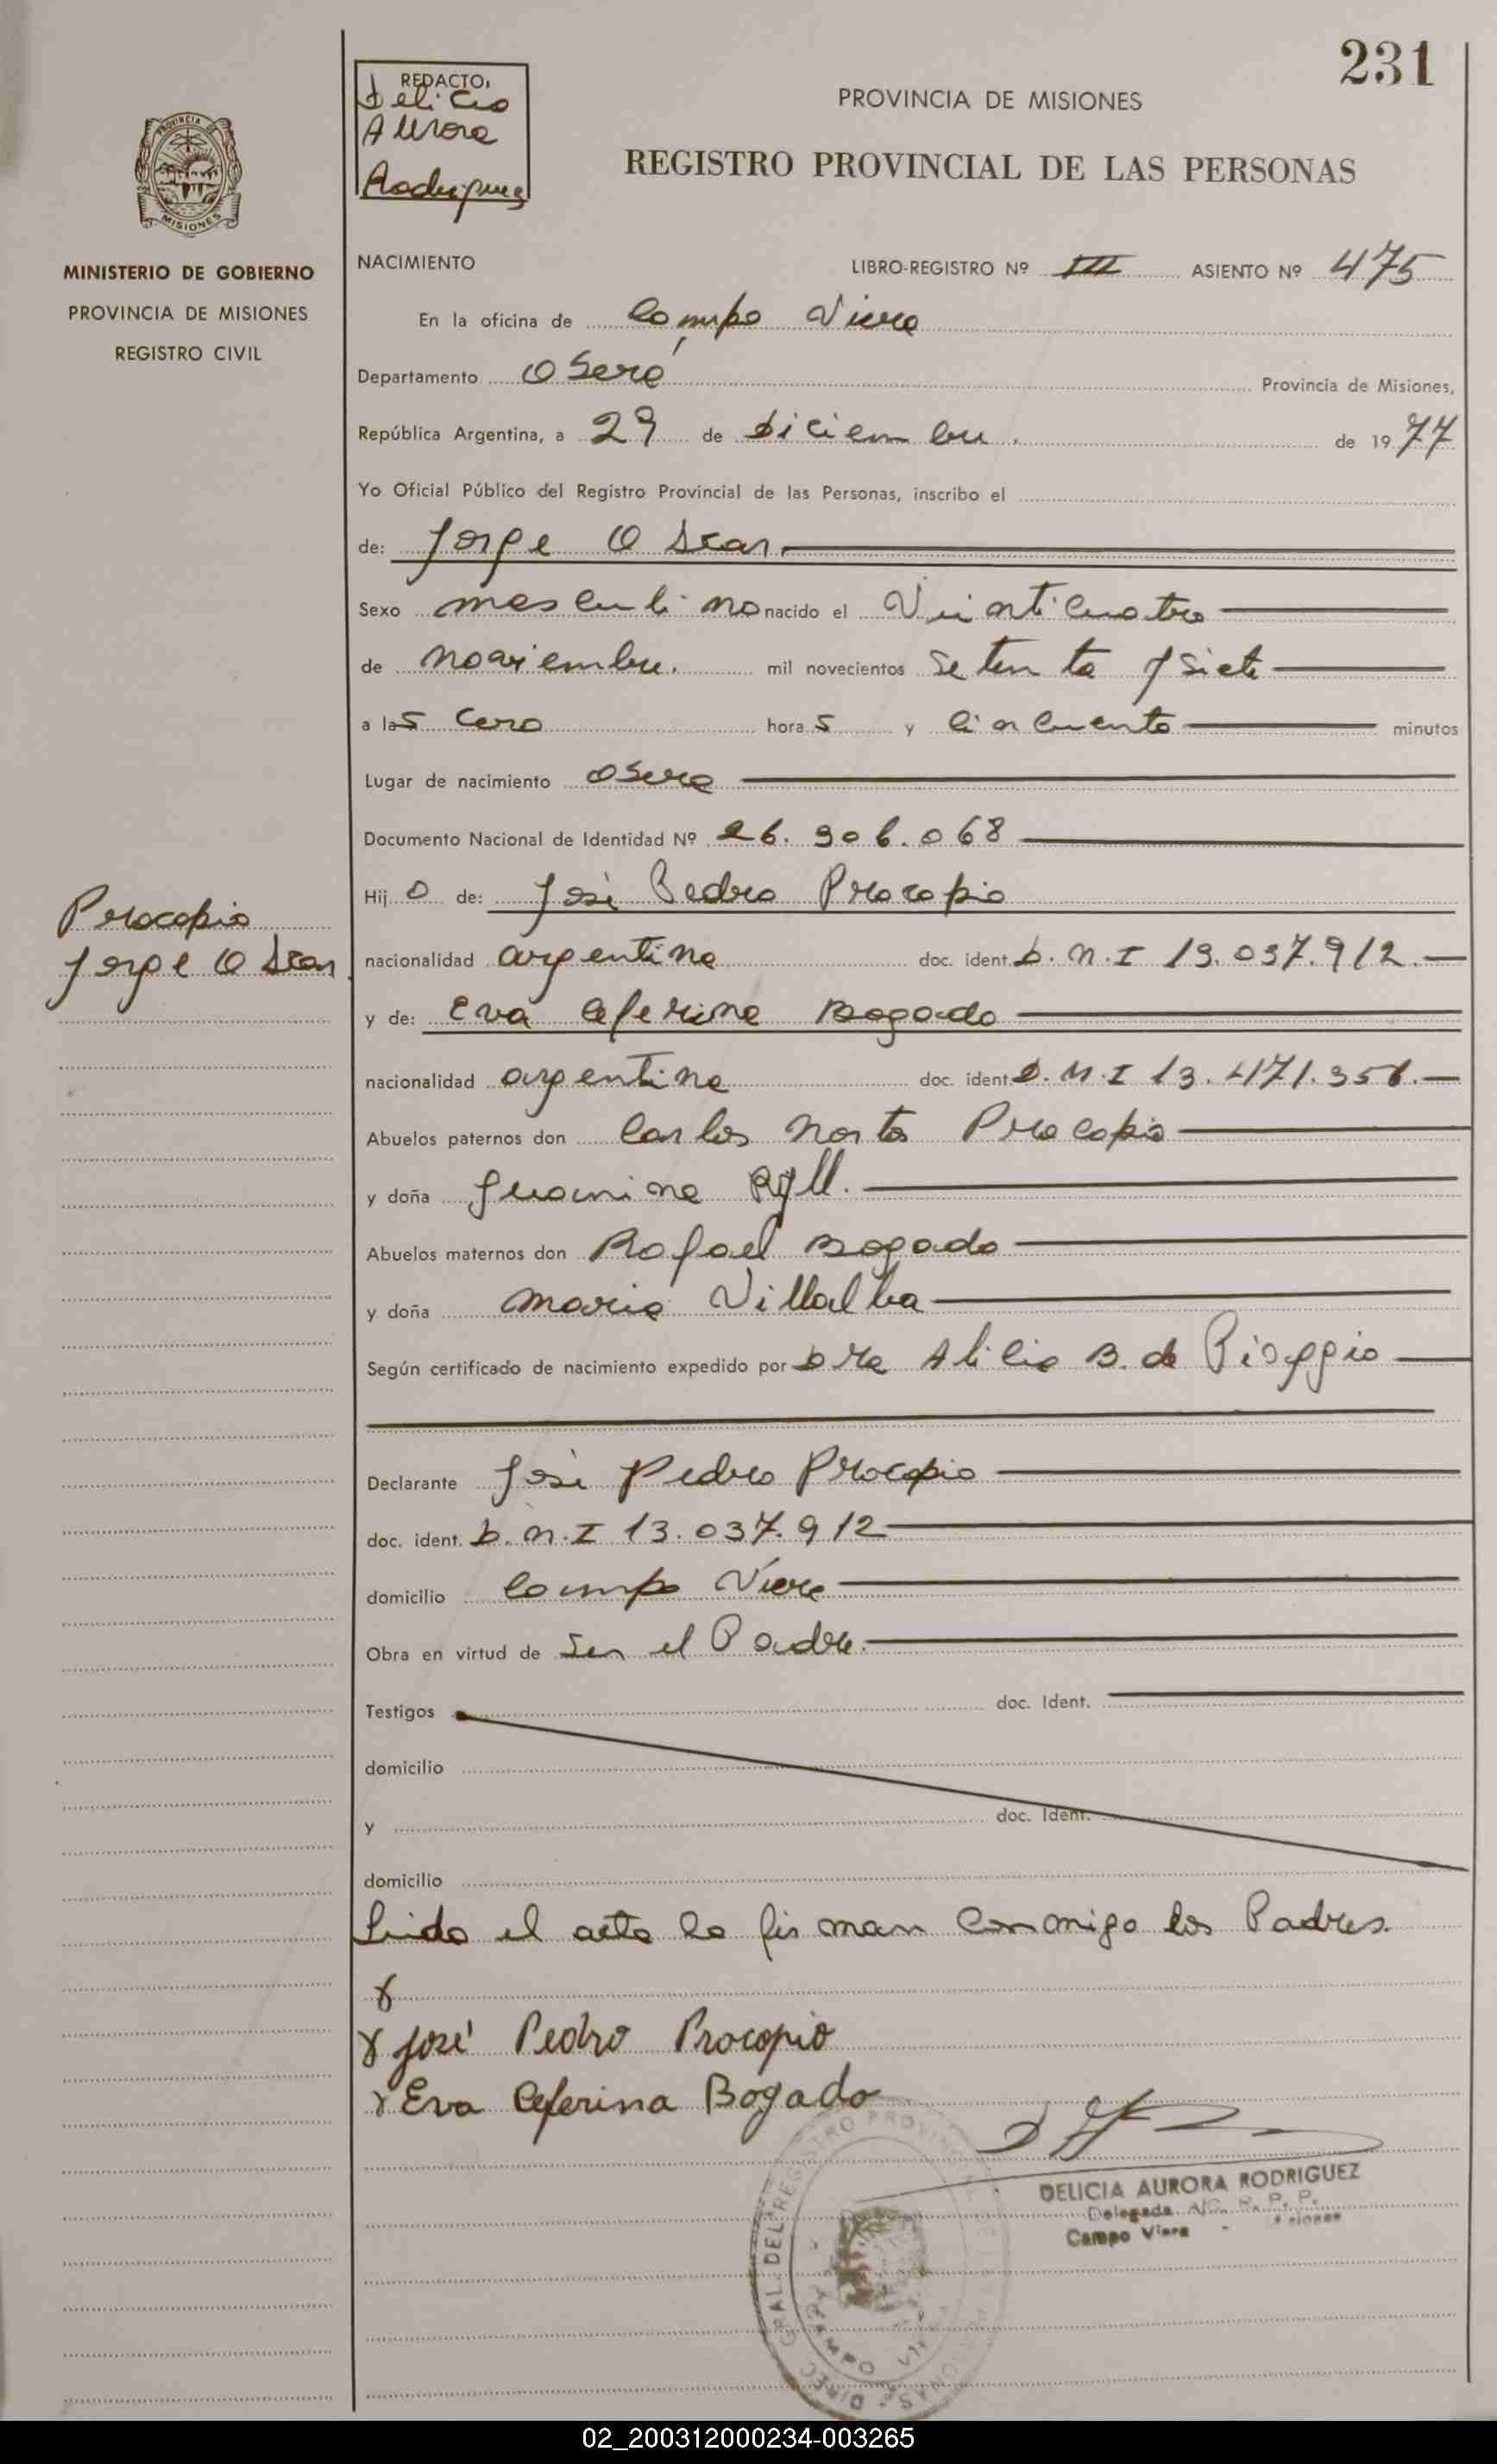 231
REDACTO:
Delicia
Aurora
Rodriguez
PROVINCIA DE MISIONES
REGISTRO PROVINCIAL DE LAS PERSONAS
PROVINCIA DE
MISIONES
MINISTERIO DE GOBIERNO
PROVINCIA DE MISIONES
REGISTRO CIVIL
NACIMIENTO LIBRO-REGISTRO Nº III ASIENTO Nº 475
En la oficina de Campo Viera
Departamento Oberá Provincia de Misiones,
República Argentina, a 29 de Diciembre. de 1977
Yo Oficial Público del Registro Provincial de las Personas, inscribo el
de: Jorge Oscar
Sexo masculino nacido el Veinticuatro
de noviembre. mil novecientos setenta y siete
a las cero horas y cincuenta minutos
Lugar de nacimiento Oberá
Documento Nacional de Identidad Nº 26.306.068
Hijo de: José Pedro Procopio
Procopio
Jorge Oscar
nacionalidad argentina doc. ident. D.N.I 13.037.912.
y de: Eva Ceferina Bogado
nacionalidad argentina doc. ident. D.N.I 13.471.356.
Abuelos paternos don Carlos Procopio
y doña
Abuelos maternos don Rafael Bogado
y doña Maria Villalba
Según certificado de nacimiento expedido por Dra Alicia B. de Pioggio
Declarante José Pedro Procopio
doc. ident. D.N.I 13.037.912
domicilio Campo Viera
Obra en virtud de ser el Padre.
Testigos doc. Ident.
domicilio
y doc. Ident.
domicilio
Leida el acta la firman conmigo los Padres.
x
x José Pedro Procopio
x Eva Ceferina Bogado
DELICIA AURORA RODRIGUEZ
Delegada A/C. R. P. P.
Campo Viera - Misiones
DIREC. GRAL. DEL REGISTRO PROVINCIAL DE LAS PERSONAS
CAMPO VIERA
02_200312000234-003265